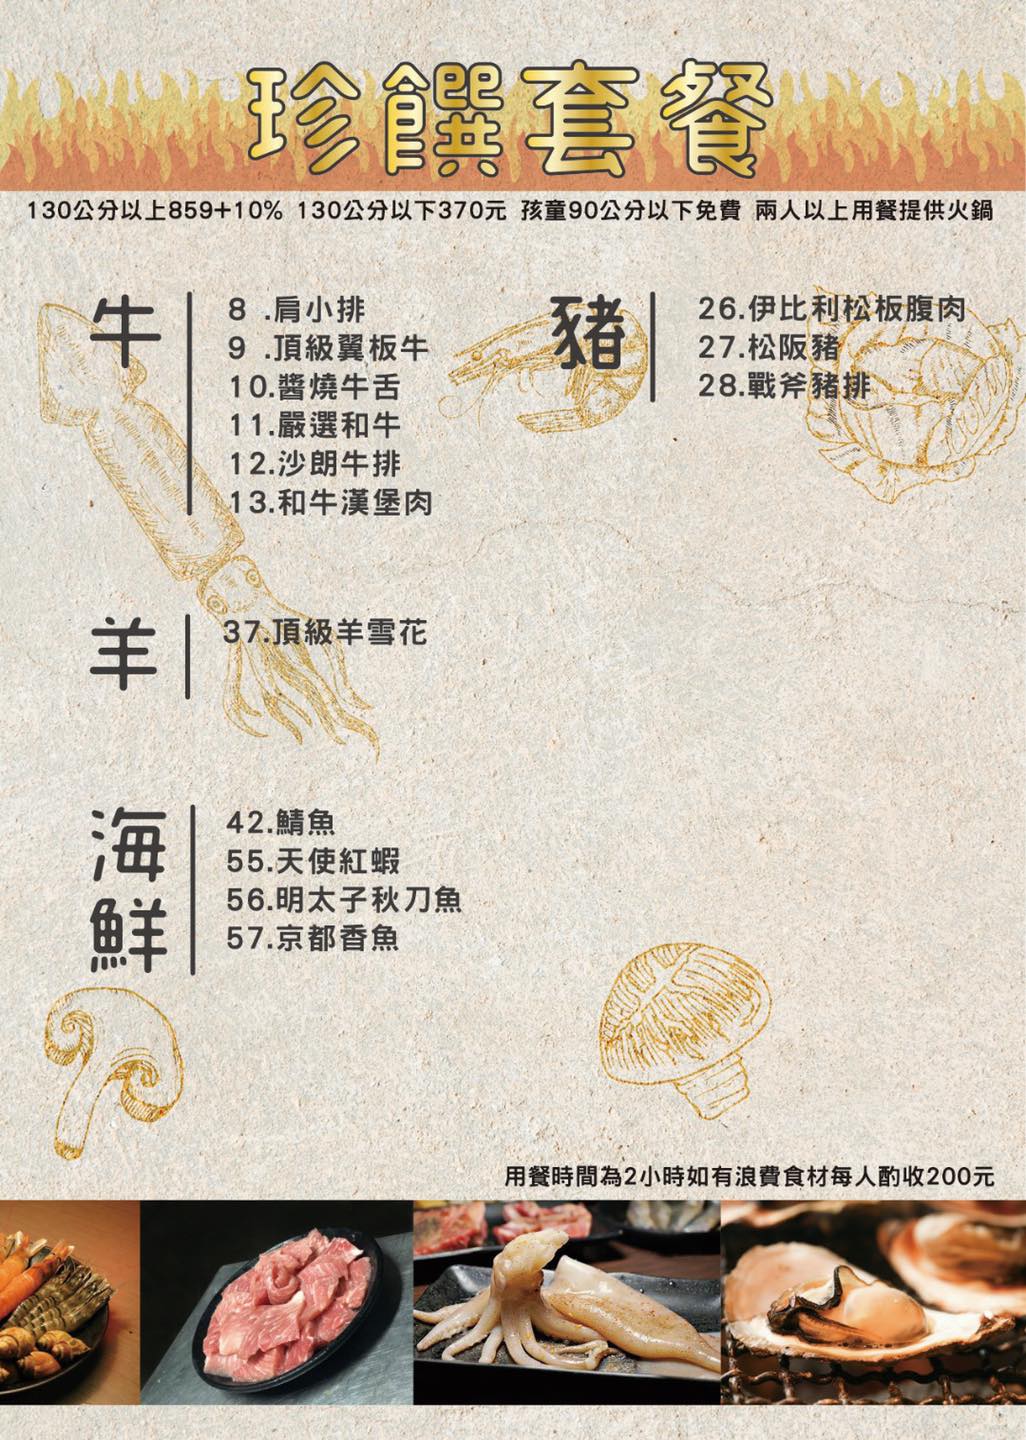 珍饌套餐
130公分以上859+10% 130公分以下370元 孩童90公分以下免費 兩人以上用餐提供火鍋
牛
8 .肩小排
9 .頂級翼板牛
10.醬燒牛舌
11.嚴選和牛
12.沙朗牛排
13.和牛漢堡肉
豬
26.伊比利松板腹肉
27.松阪豬
28.戰斧豬排
羊
37.頂級羊雪花
海鮮
42.鯖魚
55.天使紅蝦
56.明太子秋刀魚
57.京都香魚
用餐時間為2小時如有浪費食材每人酌收200元